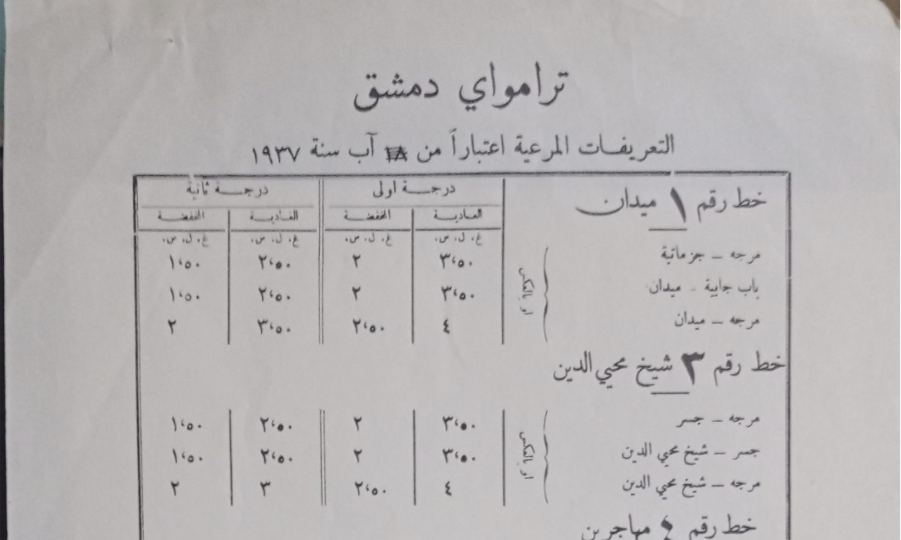 ترامواي دمشق
التعريفات المرعية اعتباراً من ١٨ آب سنة ١٩٣٧
خط رقم ١ ميدان
درجة اولى درجة ثانية
العادية المخفضة العادية المخفضة
غ. ل. س. غ. ل. س. غ. ل. س. غ. ل. س.
مرجه – جزماتية ٣،٥٠ ٢ ٢،٥٠ ١،٥٠
باب جابية – ميدان ٣،٥٠ ٢ ٢،٥٠ ١،٥٠
مرجه – ميدان ٤ ٢،٥٠ ٣،٥٠ ٢
او بالعكس
خط رقم ٣ شيخ محيي الدين
مرجه – جسر ٣،٥٠ ٢ ٢،٥٠ ١،٥٠
جسر – شيخ محيي الدين ٣،٥٠ ٢ ٢،٥٠ ١،٥٠
مرجه – شيخ محيي الدين ٤ ٢،٥٠ ٣ ٢
او بالعكس
خط رقم ٤ مهاجرين